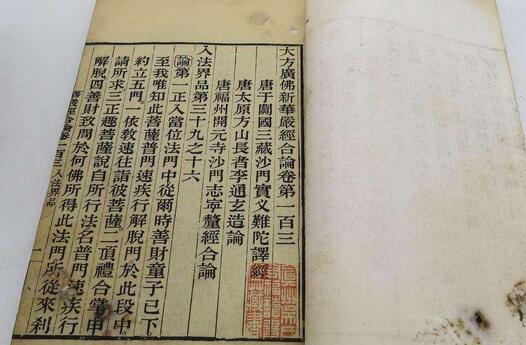 大方廣佛新華嚴經合論卷第一百三
唐于闐國三藏沙門實叉難陀譯經
唐太原方山長者李通玄造論
唐福州開元寺沙門志寧釐經合論
入法界品第三十九之十六
論第一正入當位法門中從爾時善財童子已下
至我唯知此菩薩普門速疾行解脫門於此段中
約立五門一依教速往詣彼菩薩二頂禮合掌申
請所求三正趣菩薩說自所行法名普門速疾行
解脫四善財致問於何佛所得此法門所從來剎
華嚴經合論卷一百三 入法界品 一